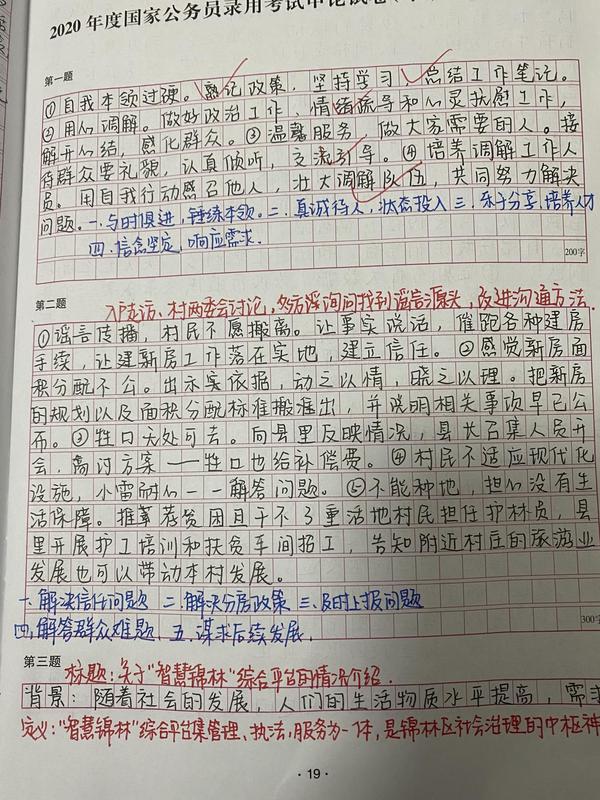 2020年度国家公务员录用考试申论试卷
第一题
①自我本领过硬。熟记政策，坚持学习，总结工作笔记。
②用心调解。做好政治工作，情绪疏导和心灵抚慰工作，
解开心结，感化群众。③温馨服务，做大家需要的人。接
待群众要礼貌，认真倾听，交流引导。④培养调解工作人
员。用自我行动感召他人，壮大调解队伍，共同努力解决
问题。一.与时俱进，锤练本领。二.真诚待人，状态投入 三.乐于分享.培养人才
四.信念坚定.响应需求.
200字
第二题
入户走访、村两委会讨论，多方询问找到谣言源头，改进沟通方法.
①谣言传播，村民不愿搬离。让事实说话，催跑各种建房
手续，让建新房工作落在实地，建立信任。②感觉新房面
积分配不公。出示实依据，动之以情，晓之以理。把新房
的规划以及面积分配标准搬准出，并说明相关事项早已公
布。③牲口无处可去。向县里反映情况，县长召集人员开
会，商讨方案——牲口也给补偿费。④村民不适应现代化
设施，小雷耐心一一解答问题。⑤不能种地，担心没有生
活保障。推荐贫困且干不了重活地村民担任护林员，县
里开展护工培训和扶贫车间招工，告知附近村庄的旅游业
发展也可以带动本村发展。
一.解决信任问题 二.解决分房政策 三.及时上报问题
四.解答群众难题. 五.谋求后续发展.
300字
第三题
标题：关于“智慧锦林”综合平台的情况介绍.
背景：随着社会的发展，人们的生活物质水平提高，需求
定义：“智慧锦林”综合平台集管理、执法，服务为一体，是锦林区社会治理的中枢神
·19·